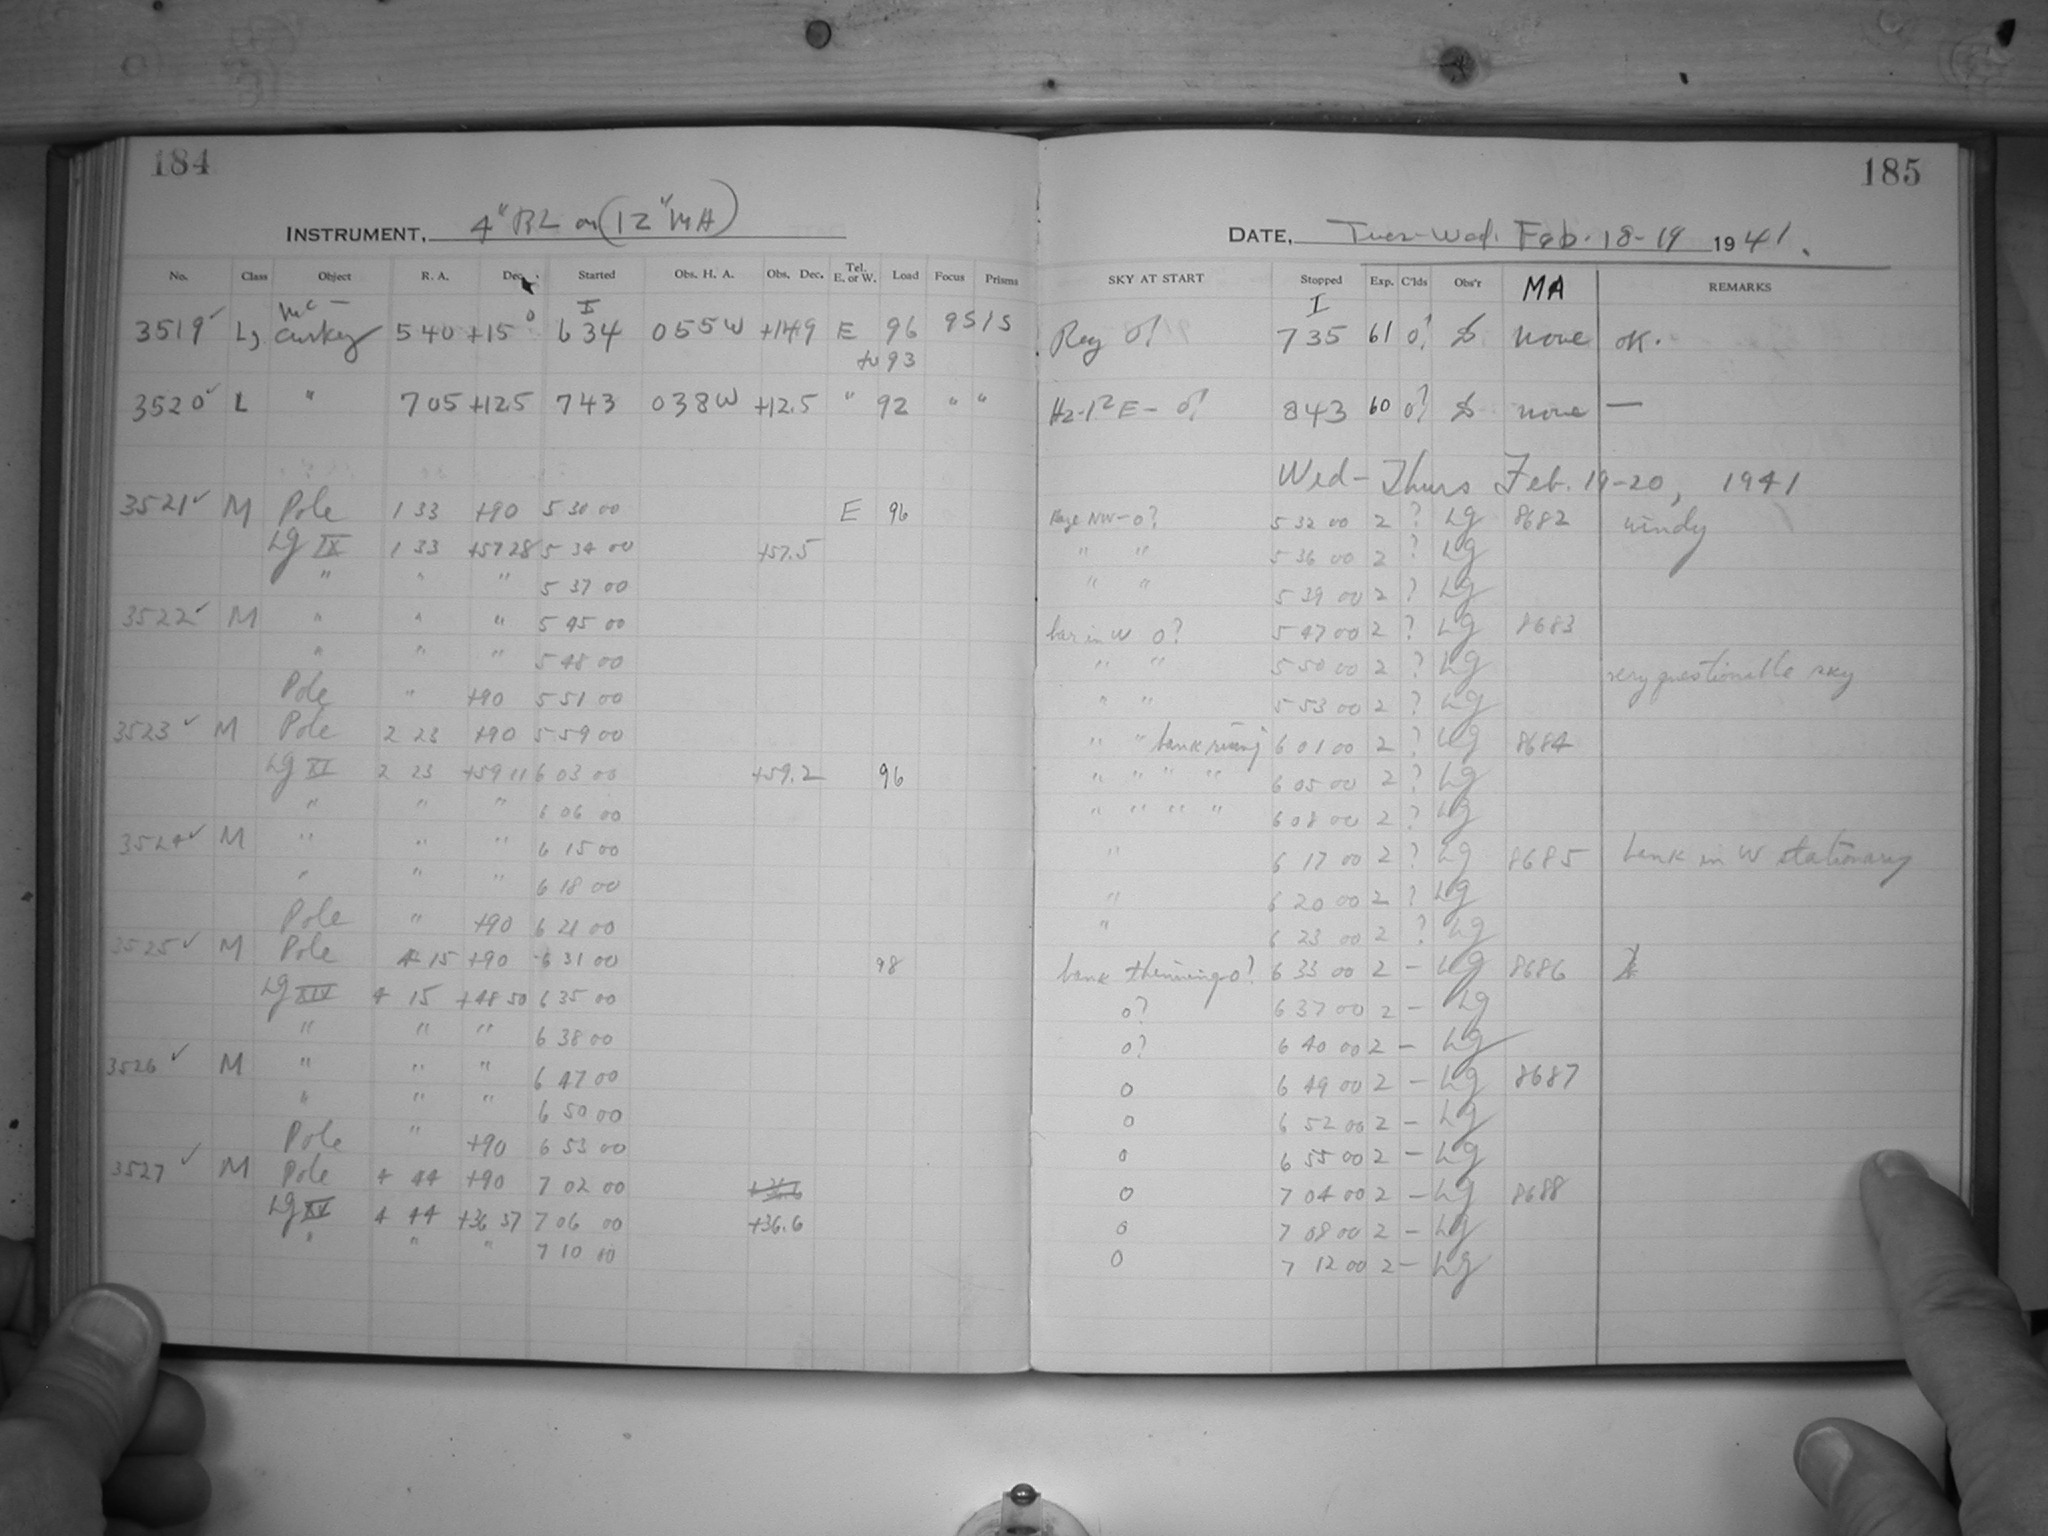 184
INSTRUMENT, 4" BL on (12" MA)
No. Class Object R. A. Dec. Started Obs. H. A. Obs. Dec. Tel. E. or W. Load Focus Prisms
I
3519 ✓ L, McCuskey 5 40 +15° 6 34 0 55 W +14.9 E 96 95 15
to 93
3520 ✓ L " 7 05 +12.5 7 43 0 38 W +12.5 " 92 " "
3521 ✓ M Pole 1 33 +90 5 30 00 E 96
Lg IX 1 33 +57 28 5 34 00 +57.5
" " " 5 37 00
3522 ✓ M " " " 5 45 00
" " " 5 48 00
Pole " +90 5 51 00
3523 ✓ M Pole 2 23 +90 5 59 00
Lg XI 2 23 +59 11 6 03 00 +59.2 96
" " " 6 06 00
3524 ✓ M " " " 6 15 00
" " " 6 18 00
Pole " +90 6 21 00
3525 ✓ M Pole 4 15 +90 6 31 00 98
Lg XIV 4 15 +48 50 6 35 00
" " " 6 38 00
3526 ✓ M " " " 6 47 00
" " " 6 50 00
Pole " +90 6 53 00
3527 ✓ M Pole 4 44 +90 7 02 00
Lg XV 4 44 +36 37 7 06 00 +36.6
" " " 7 10 00
185
DATE, Tues-Wed. Feb. 18-19 1941.
SKY AT START Stopped Exp. C'lds Obs'r MA REMARKS
I
0? 7 35 61 0? none OK.
Hz-1² E - 0? 8 43 60 0? none —
Wed - Thurs Feb. 19-20, 1941
Haze NW - 0? 5 32 00 2 ? Lg 8682 windy
" " 5 36 00 2 ? Lg
" " 5 39 00 2 ? Lg
bar in W 0? 5 47 00 2 ? Lg 8683
" " 5 50 00 2 ? Lg very questionable sky
" " 5 53 00 2 ? Lg
" " bank rising 6 01 00 2 ? Lg 8684
" " " " 6 05 00 2 ? Lg
" " " " 6 08 00 2 ? Lg
" 6 17 00 2 ? Lg 8685 bank in W stationary
" 6 20 00 2 ? Lg
" 6 23 00 2 ? Lg
bank thinning 0? 6 33 00 2 - Lg 8686
0? 6 37 00 2 - Lg
0? 6 40 00 2 - Lg
0 6 49 00 2 - Lg 8687
0 6 52 00 2 - Lg
0 6 55 00 2 - Lg
0 7 04 00 2 - Lg 8688
0 7 08 00 2 - Lg
0 7 12 00 2 - Lg